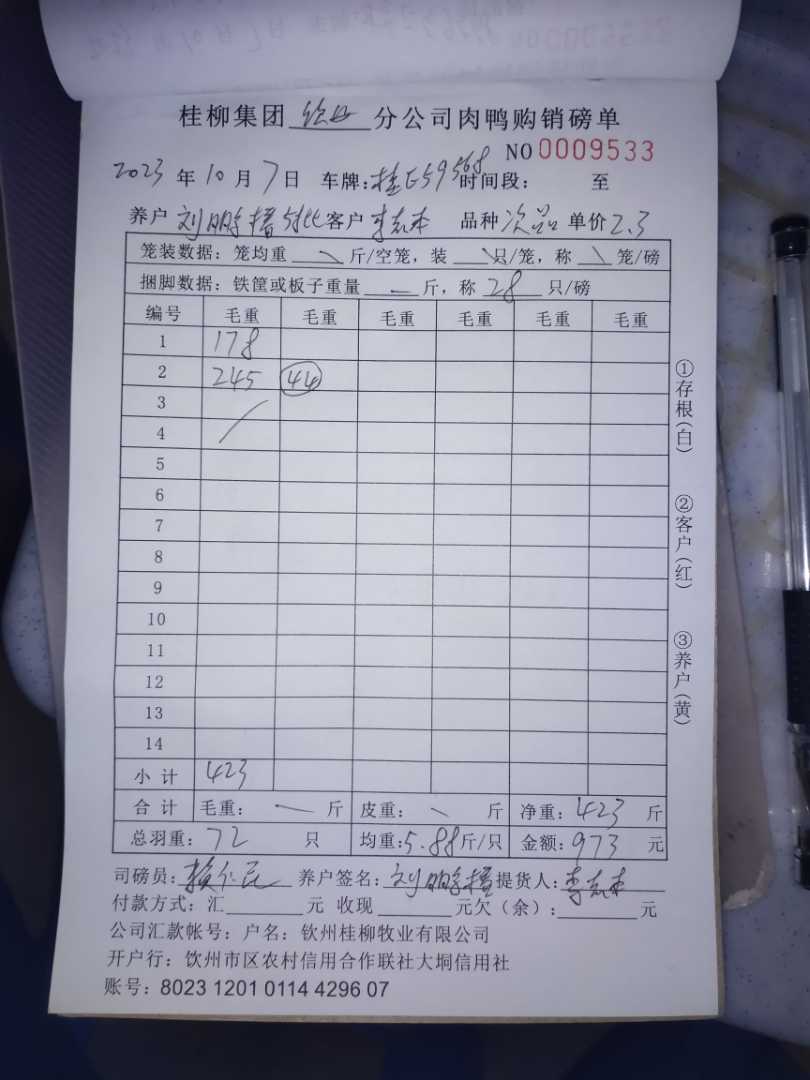 桂柳集团 分公司肉鸭购销磅单
NO 0009533
2023 年 10 月 7 日 车牌:桂E59568 时间段: 至
养户 刘鹏 客户 李志本 品种 次品 单价 2.3
笼装数据:笼均重 斤/空笼,装 只/笼,称 笼/磅
捆脚数据:铁筐或板子重量 斤,称 28 只/磅
编号 毛重 毛重 毛重 毛重 毛重 毛重
1 178
2 245 44
3
4
5
6
7
8
9
10
11
12
13
14
小计 423
合计 毛重: 斤 皮重: 斤 净重:423 斤
总羽重:72 只 均重:5.88斤/只 金额:973 元
司磅员: 养户签名:刘鹏 提货人:李志本
付款方式:汇 元 收现 元欠(余): 元
公司汇款帐号:户名:钦州桂柳牧业有限公司
开户行:饮州市区农村信用合作联社大垌信用社
账号:8023 1201 0114 4296 07
①存根(白)
②客户(红)
③养户(黄)